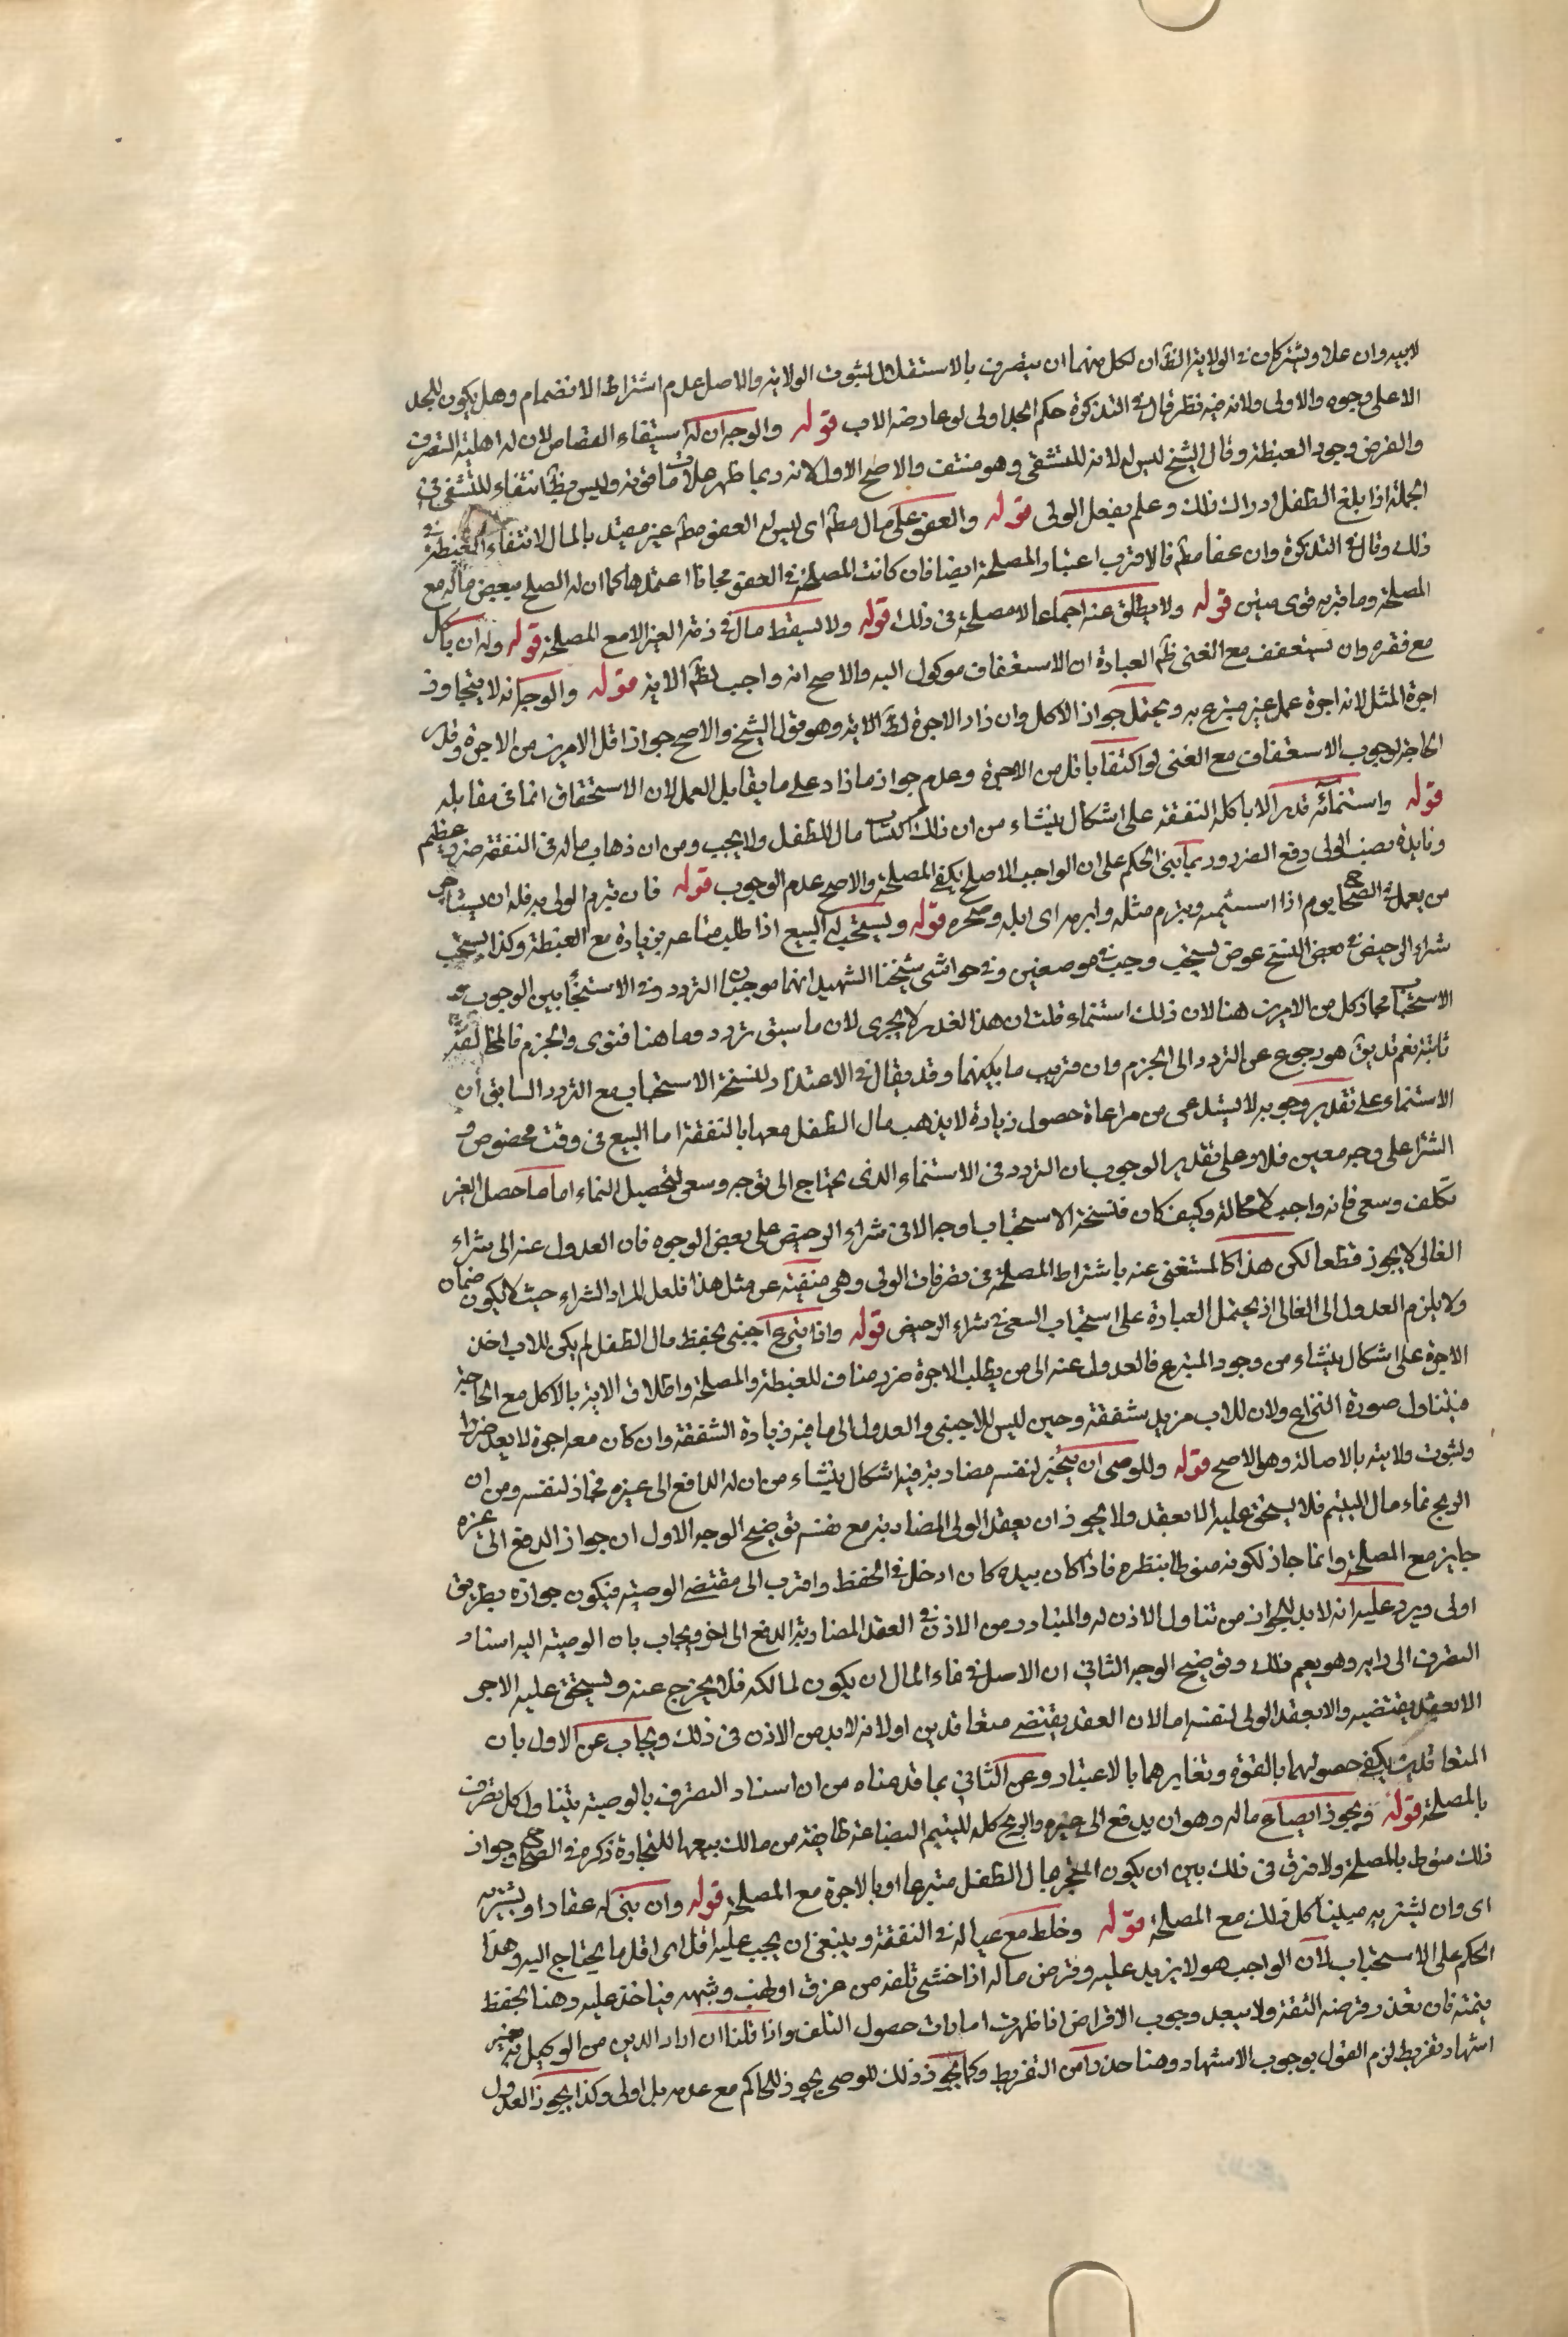 لابيه وان علا ويشتركان في الولاية الظ ان لكل منهما ان يتصرف بالاستقلال لثبوت الولاية والاصل عدم اشتراط الانضمام وهل يكون للجد
الاعلى وجوه والاولى ولاته فيه نظر قال في التذكرة حكم الجد اولى لو عارضه الاب قوله والوجه ان له استيفاء القصاص لان له اهلية التصرف
والفرض وجود الغبطة وقال الشيخ ليس له لانه للتشفى وهو منتف والاصح الاول لانه ربما ظهر خلاف ما فوته وليس حظ انتفاء للتشفى في
الجملة اذا بلغ الطفل ادراك ذلك وعلم بفعل الولى قوله والعفو على مال مط اى ليس له العفو مط غير مقيد بالمال لانتفاء الغبطة في
ذلك وقال في التذكرة وان عفا مط فالاقرب اعتبار المصلحة ايضا فان كانت المصلحة في العفو مجانا اعتمدها كما ان له الصلح ببعض ماله مع
المصلحة وما قربه قوى متين قوله ولا يطلق عنه اجماعا لا مصلحة في ذلك قوله ولا يسقط مال في ذمة الغير الا مع المصلحة قوله وله ان ياكل
مع فقره وان يستعفف مع الغنى ظ العبارة ان الاستعفاف موكول اليه والاصح انه واجب لظ الاية قوله والوجه انه لا يتجاوز
اجرة المثل لانه اجرة عمل غير متبرع به ويحتمل جواز الاكل وان زاد الاجرة لظ الاية وهو قول الشيخ والاصح جواز اقل الامرين من الاجرة وقدر
الحاجة لوجوب الاستعفاف مع الغنى لو اكتفا باقل من الاجرة وعدم جواز ما زاد على ما يقابل العمل لان الاستحقاق انما في مقابله
قوله واستنمائه قدر الا ياكله النفقة على اشكال ينشاء من ان ذلك اكتساب مال للطفل ولا يجب ومن ان ذهاب ماله في النفقة ضرر عظيم
وفايدة نصب الولى دفع الضرر وربما بنى الحكم على ان الواجب الاصلح يكفى المصلحة والاصح عدم الوجوب قوله فان تبرم الولى به فله ان يستاجر
من يعمل في الصحاح يوم اذا استثمه وتبرم مثله وابرمه اى ابله وضجره قوله ويستحب له البيع اذا طلب متاعه بزيادة مع الغبطة وكذا يستحب
شراء الرخيص في بعض النسخ عوض يستحب وجب في موضعين وفي حواشى شيخنا الشهيد انهما موجبان التردد في الاستنماء بين الوجوب و
الاستحباب مجاز كل من الامرين هنا لان ذلك استنماء قلت ان هذا الغدر لا يجرى لان ما سبق تردد وما هنا فتوى والجزم فالمخالفة
ثابتة نعم تدبق هو رجوع عن التردد الى الجزم وان قريب ما بينهما وقد يقال في الاعتذار لنسخة الاستحباب مع التردد السابق ان
الاستنماء على تقدير وجوبه لا يستدعى من مراعاة حصول زيادة لا يذهب مال الطفل معها بالنفقة اما البيع في وقت مخصوص و
الشرا على وجه معين فلا وعلى تقدير الوجوب بان التردد في الاستنماء الذى يحتاج الى توجه وسعى لتحصيل النماء اما ما حصل الغير
تكلف وسعى فانه واجب لا محالة وكيف كان فنسخة الاستحباب اوجه الا في شراء الرخيص على بعض الوجوه فان العدول عنه الى شراء
الغالى لا يجوز قطعا لكن هذا كالمستغنى عنه باشتراط المصلحة في تصرفات الولى وهى منتفية عن مثل هذا فلعل المراد الشراء حيث لا يكون ضمان
ولا يلزم العدول الى الغالى اذ يحتمل العبارة على استحباب السعى في شراء الرخيص قوله واذا تبرع اجنبى بحفظ مال الطفل لم يكن للاب اخذ
الاجرة على اشكال ينشاء من وجود المتبرع فالعدول عنه الى من يطلب الاجرة ضرر مناف للغبطة والمصلحة واطلاق الاية بالاكل مع الحاجة
فيتناول صورة النزاع ولان للاب مزيد شفقة وحنين ليس للاجنبى والعدول الى ما فيه زيادة الشفقة وان كان معه اجرة لا يعد ضررا
ولثبوت ولايته بالاصالة وهو الاصح قوله وللوصى ان يتجر لنفسه مضاربة فيه اشكال ينشاء من ان له الدافع الى غيره فجاز لنفسه ومن ان
الربح نماء مال اليتيم فلا يستحق عليه الا بعقد ولا يجوز ان يعقد الولى المضاربة مع نفسه توضيح الوجه الاول ان جواز الدفع الى غيره
جايز مع المصلحة وانما جاز لكونه منوطا بنظره فاذا كان بيده كان ادخل في الحفظ واقرب الى مقتضى الوصية فيكون جوازه بطريق
اولى ويرد عليه انه لا بد للجواز من تناول الاذن له والمتبادر من الاذن في العقد المضاربة الدفع الى اخر ويجاب بان الوصية اليه اسناد
التصرف الى رايه وهو يعم ذلك وتوضيح الوجه الثانى ان الاصل في نماء المال ان يكون لمالكه فلا يخرج عنه ويستحق عليه الاجر
الا بعقد يقتضيه والا بعقد الولى لنفسه اما لان العقد يقتضى متعاقدين اولا انه لا بد من الاذن في ذلك ويجاب عن الاول بان
المتعاقدين يكفى حصولهما بالقوة وتغايرهما بالاعتبار وعن الثانى بما قدمناه من ان اسناد التصرف بالوصية يتناول كل تصرف
بالمصلحة قوله ويجوز ابضاع ماله وهو ان يدفع الى غيره والربح كله لليتيم البضاعة طايفة من مالك يبعثها للتجارة ذكره في الصحاح وجواز
ذلك منوط بالمصلحة ولا فرق في ذلك بين ان يكون المتجر بمال الطفل متبرعا او بالاجرة مع المصلحة قوله وان يبنى له عقارا او يشتريه
اى وان يشتريه مبنيا كل ذلك مع المصلحة قوله وخلط مع عياله في النفقة وينبغى ان يحسب عليه اقل اى اقل ما يحتاج اليه وهذا
الحكم على الاستحباب لان الواجب هو لا يزيد عليه وقرض ماله اذا خشى تلفه من غرق او نهب وشبهه فياخذ عليه رهنا يحفظ
بثمنه فان تعذر قرضه الثقة ولا يبعد وجوب الاقراض اذا ظهرت امارات حصول التلف واذا قلنا ان اراد الدين من الوكيل بغير
اشهاد تفريط لزم القول بوجوب الاشهاد وهنا حذرا من التفريط وكما يجوز ذلك للوصى يجوز للحاكم مع عدمه بل اولى وكذا يجوز العدول